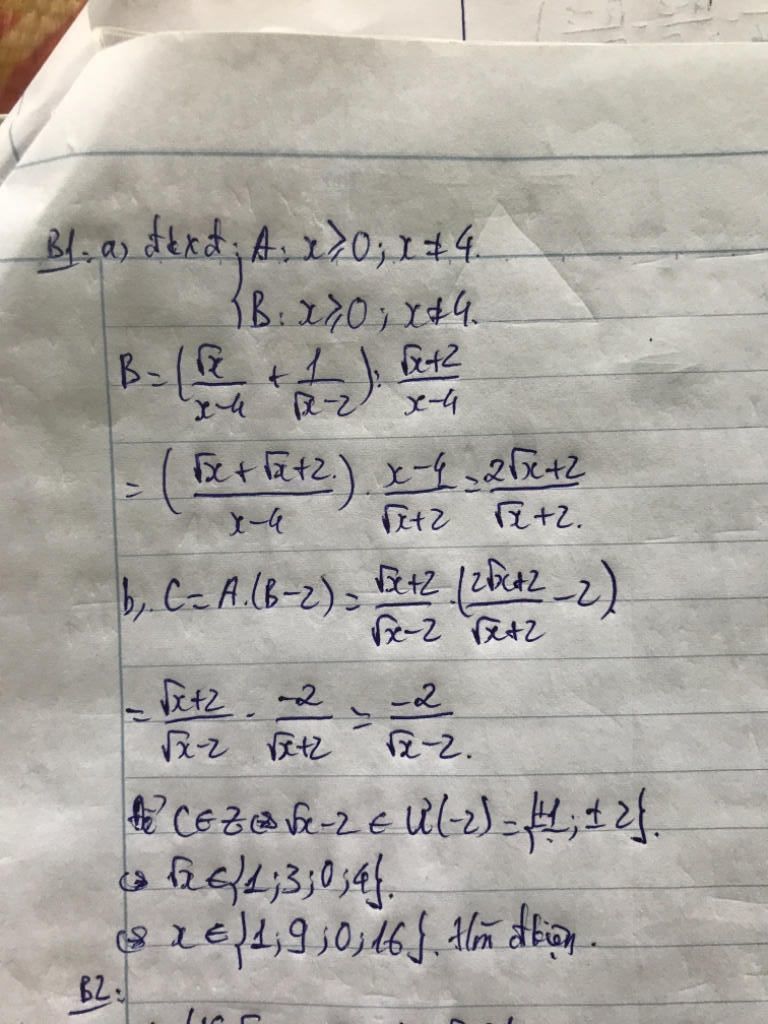 B1: a) đkxđ: { A: x ≥ 0; x ≠ 4.
B: x ≥ 0; x ≠ 4.
B = (√x/(x-4) + 1/(√x-2)) : (√x+2)/(x-4)
= ((√x + √x + 2)/(x-4)) . (x-4)/(√x+2) = (2√x+2)/(√x+2).
b, C = A.(B-2) = (√x+2)/(√x-2) . ((2√x+2)/(√x+2) - 2)
= (√x+2)/(√x-2) . -2/(√x+2) = -2/(√x-2).
Để C ∈ Z ⇔ √x-2 ∈ Ư(-2) = {±1; ±2}.
⇔ √x ∈ {1; 3; 0; 4}.
⇔ x ∈ {1; 9; 0; 16}.
B2: